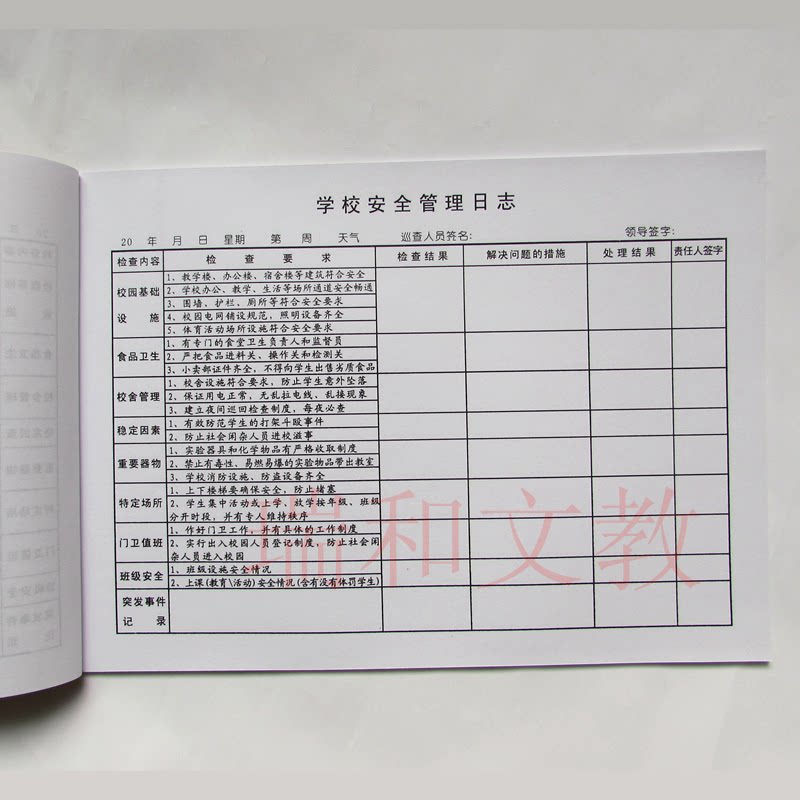 学校安全管理日志
20 年 月 日 星期 第 周 天气 巡查人员签名: 领导签字:
检查内容 检查要求 检查结果 解决问题的措施 处理结果 责任人签字
校园基础设施
1、教学楼、办公楼、宿舍楼等建筑符合安全
2、学校办公、教学、生活等场所通道安全畅通
3、围墙、护栏、厕所等符合安全要求
4、校园电网铺设规范，照明设备齐全
5、体育活动场所设施符合安全要求
食品卫生
1、有专门的食堂卫生负责人和监督员
2、严把食品进料关、操作关和检测关
3、小卖部证件齐全，不得向学生出售劣质食品
校舍管理
1、校舍设施符合要求，防止学生意外坠落
2、保证用电正常，无乱拉电线、乱接现象
3、建立夜间巡回检查制度，每夜必查
稳定因素
1、有效防范学生的打架斗殴事件
2、防止社会闲杂人员进校滋事
重要器物
1、实验器具和化学物品有严格收取制度
2、禁止有毒性、易燃易爆的实验物品带出教室
3、学校消防设施、防盗设备齐全
特定场所
1、上下楼梯要确保安全，防止堵塞
2、学生集中活动或上学、放学按年级、班级
分开时段，并有专人维持秩序
门卫值班
1、作好门卫工作，并有具体的工作制度
2、实行出入校园人员登记制度，防止社会闲
杂人员进入校园
班级安全
1、班级设施安全情况
2、上课(教育\活动)安全情况(含有没有体罚学生)
突发事件
记录
瑞和文教